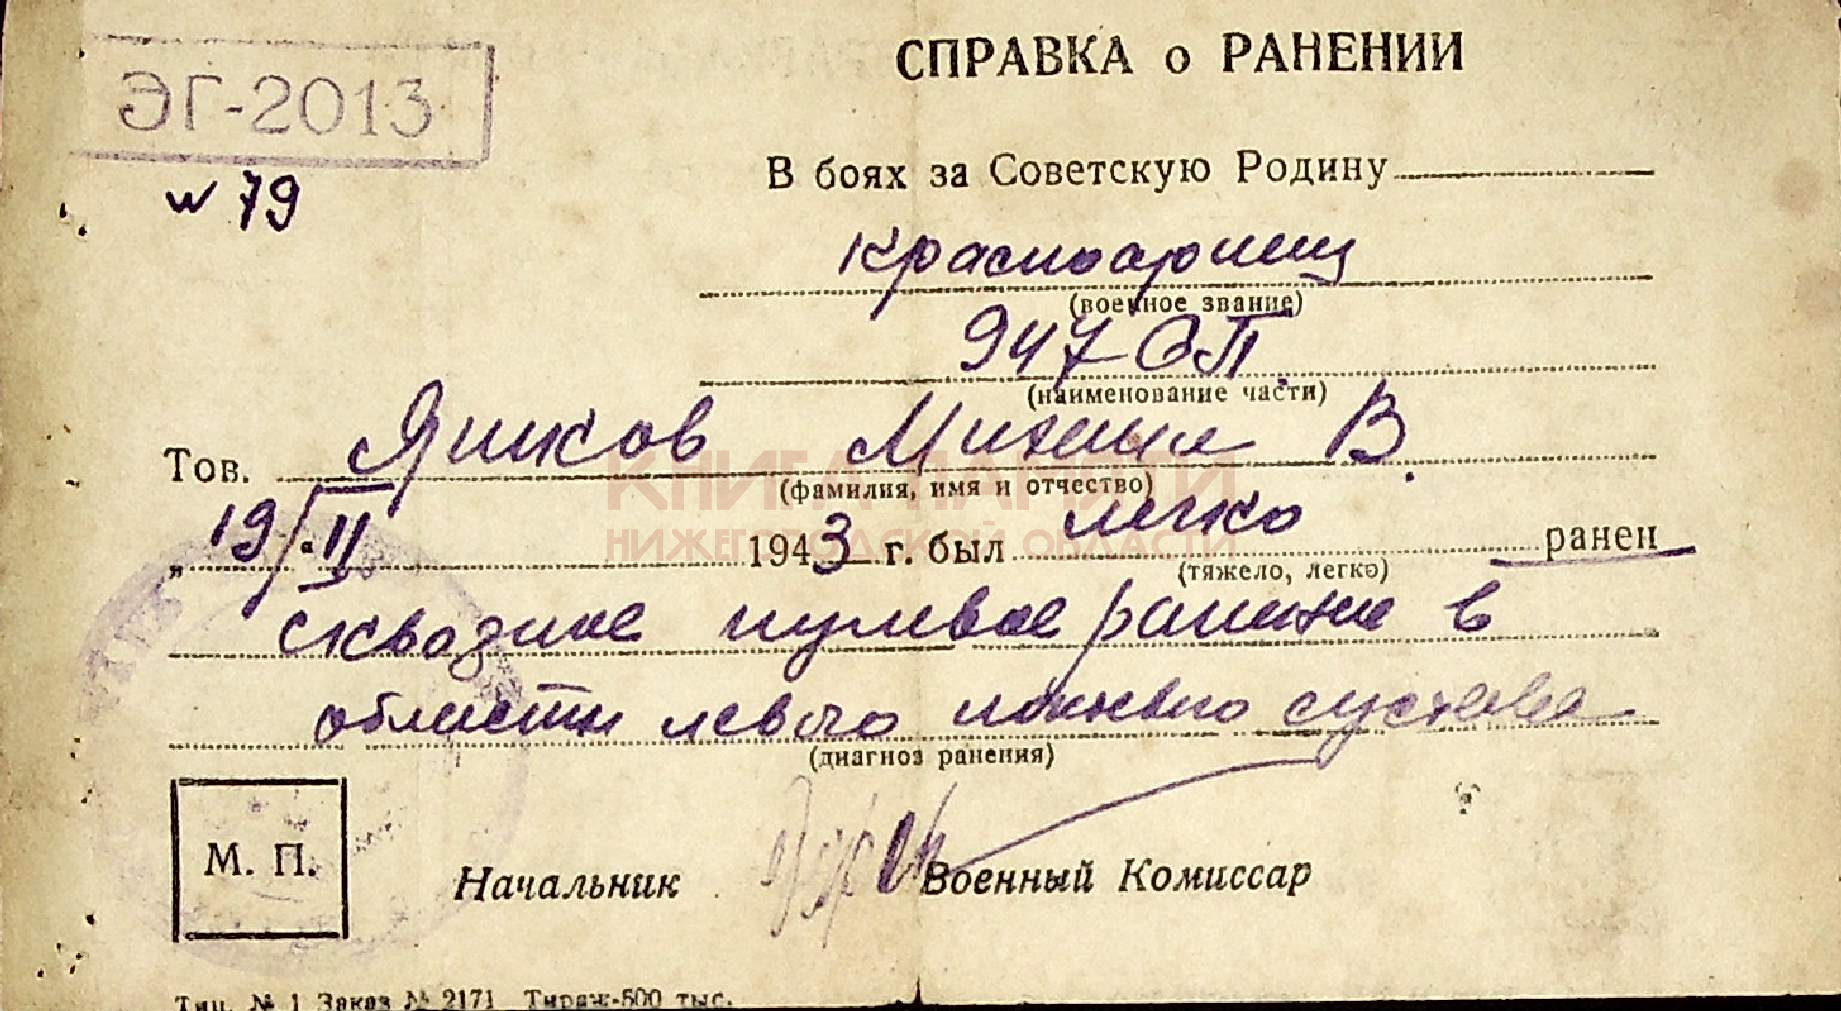 ЭГ-2013
N 79
СПРАВКА о РАНЕНИИ
В боях за Советскую Родину
красноармеец
(военное звание)
947 СП.
(наименование части)
Тов. Яшков Михаил В.
(фамилия, имя и отчество)
„ 19/II 1943 г. был легко ранен
(тяжело, легко)
сквозное пулевое ранение в
области левого локтевого сустава
(диагноз ранения)
М. П.
Начальник Военный Комиссар
Тип. № 1 Заказ № 2171 Тираж-500 тыс.
КНИГА ПАМЯТИ
НИЖЕГОРОДСКОЙ ОБЛАСТИ